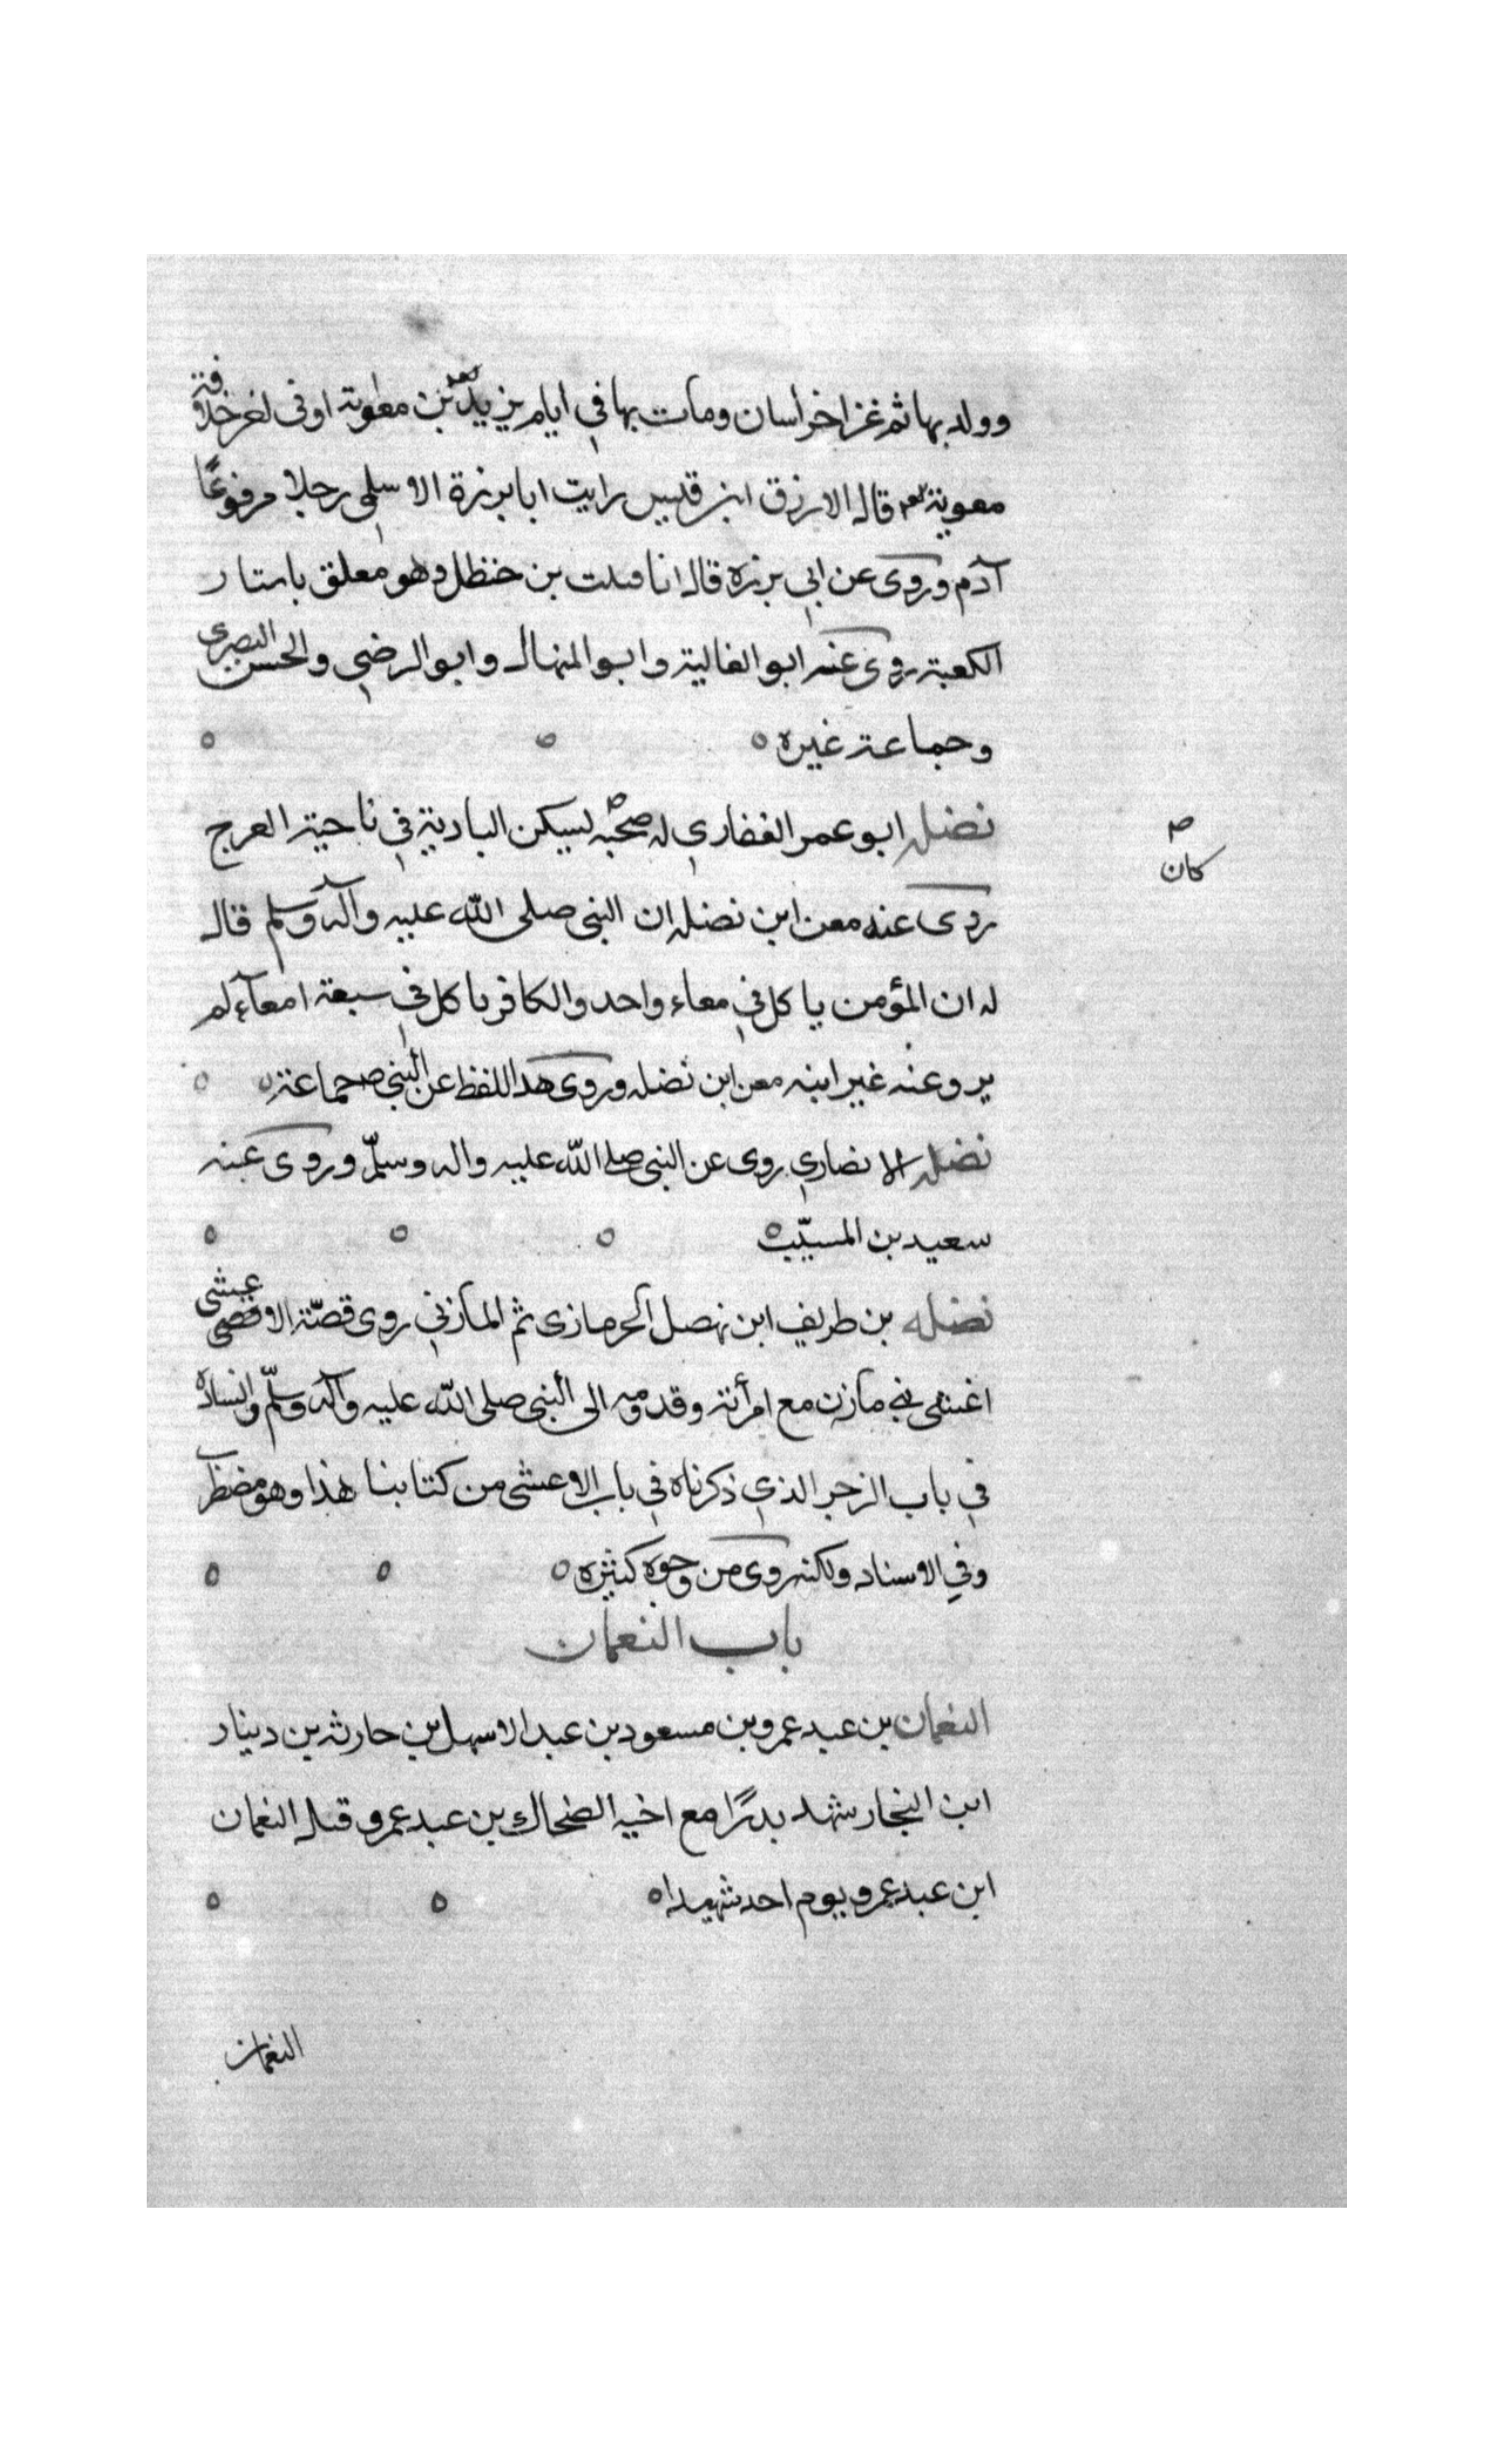 وولد بها ثم غزا خراسان ومات بها في ايام يزيد بن معوية او في اخر خلافة
معوية قال الازرق ابن قيس رايت ابا برزة الاسلمي رجلا مرفوعًا
آدم وروى عن ابي برزه قال انا قتلت بن خنظل وهو معلق باستار
الكعبة روى عنه ابو الغالية وابو المنهال وابو الرضي والحسن البصرى
وجماعة غيره
نضله ابو عمر الغفاري له صحبه يسكن البادية في ناحية العرج
كان
روى عنه معن ابن نضله ان النبي صلى الله عليه وآله وسلم قال
له ان المؤمن ياكل في معاء واحد والكافر ياكل في سبعة امعآء لم
يرو عنه غير ابنه معن ابن نضله وروى هذا اللفظ عن النبي ص جماعة
نضله الانصاري روى عن النبي صلى الله عليه واله وسلّم وروى عنه
سعيد بن المسيّب
نضله بن طريف ابن نهصل الحرمازى ثم المازني روى قصّة الاعشى
اعشى بني مازن مع امرأته وقدومه الى النبي صلى الله عليه وآله وسلّم وانشاده
في باب الزجر الذي ذكرناه في باب الاعشى من كتابنا هذا وهو مضطرب
وفي الاسناد ولكنه روى من وجوه كثيره
باب النعمان
النعمان بن عبد عمرو بن مسعود بن عبد الاسهل بن حارثه بن دينار
ابن النجار شهد بدرًا مع اخيه الضحاك بن عبد عمرو قتل النعمان
ابن عبد عمرو يوم احد شهيدا
النعمان